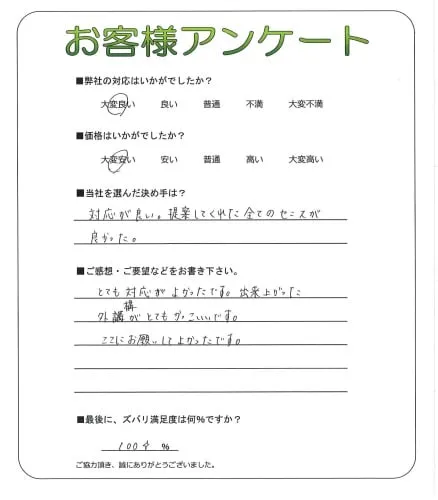 お客様アンケート
■弊社の対応はいかがでしたか？
大変良い 良い 普通 不満 大変不満
■価格はいかがでしたか？
大変安い 安い 普通 高い 大変高い
■当社を選んだ決め手は？
対応が良い。提案してくれた全てのセンスが
良かった。
■ご感想・ご要望などをお書き下さい。
とても対応がよかったです。出来上がった
構
外講がとてもかっこいいです。
ここにお願いしてよかったです。
■最後に、ズバリ満足度は何%ですか？
100 %
ご協力頂き、誠にありがとうございました。